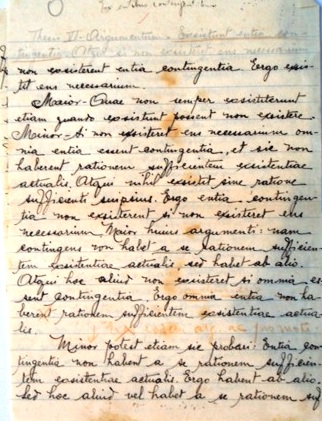 Ex entibus contingentibus
Thesis II. Argumentum. Existunt entia con-
tingentia. Atqui si non existeret ens necessarium
non existerent entia contingentia. Ergo exis-
tit ens necessarium
Maior- Quae non semper exstiterunt
etiam quando existunt possent non existere
Minor- Si non existeret ens necessarium om-
nia entia essent contingentia, et sic non
haberent rationem sufficientem existentiae
actualis. Atqui nihil existit sine ratione
sufficienti. Ergo entia contingen-
tia non existerent si non existeret ens
necessarium Maior huius argumenti: nam
contingens non habet a se rationem sufficien-
tem existentiae actualis, sed habet ab alio.
Atqui hoc aliud non existeret si omnia es-
sent contingentia. Ergo omnia entia non ha-
berent rationem sufficientem existentiae actua-
lis.
Minor potest etiam sic probari: Entia con-
tingentia non habent a se rationem sufficien-
tem existentiae actualis. Ergo habent ab alio,
sed hoc aliud vel habet a se rationem suf